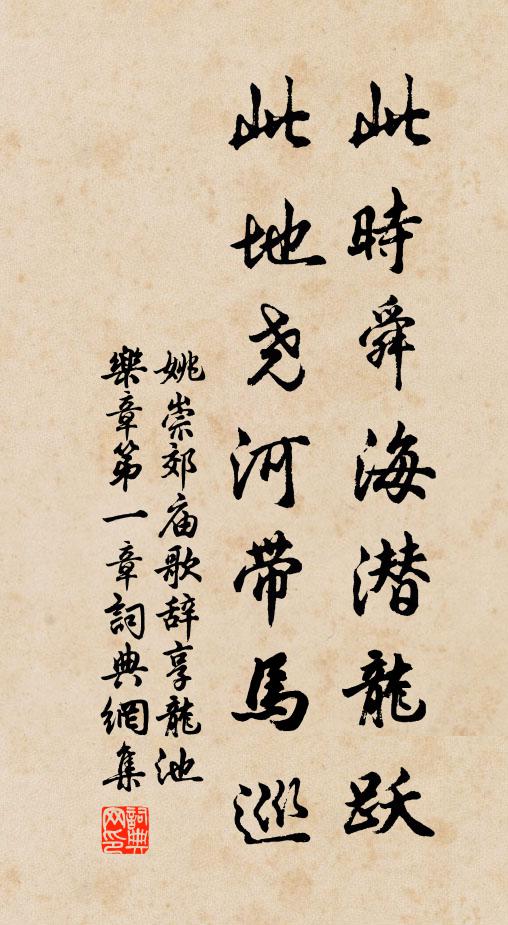 此時舜海潜龍跃
此地尧河带馬巡
姚崇郊庙歌辞享龍池
樂章第一章詞典網集
詞典网印